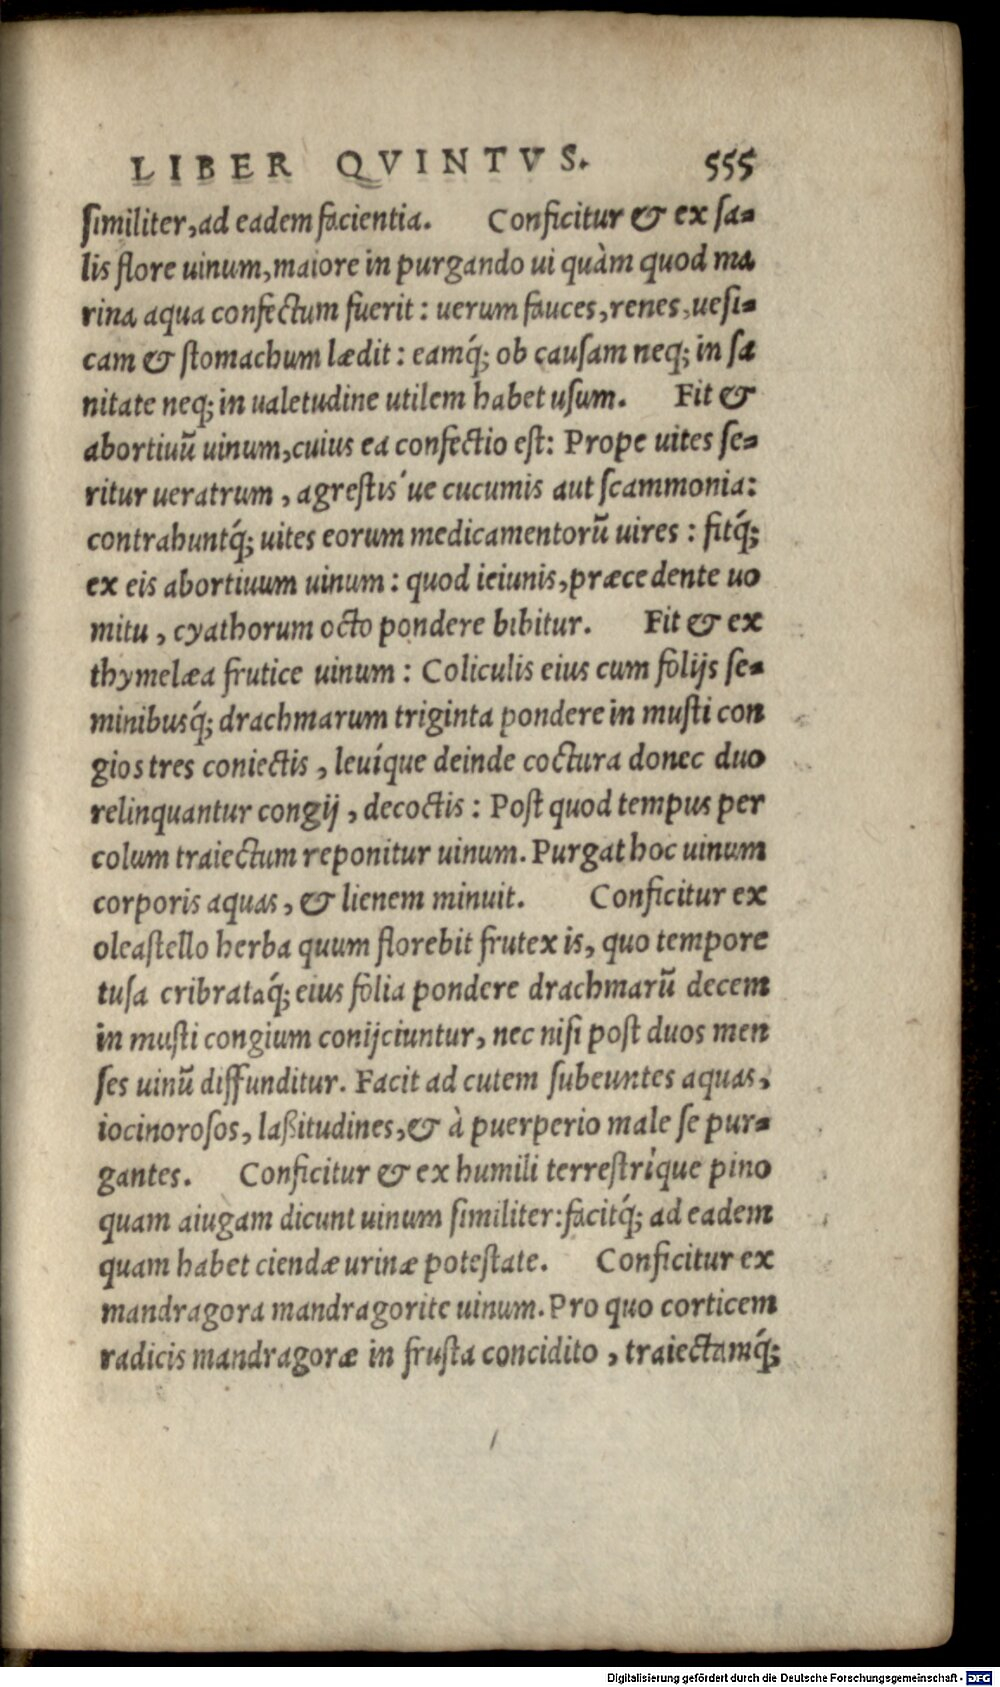 LIBER QVINTVS. 555
ſimiliter, ad eadem facientia. Conficitur & ex ſa-
lis flore uinum, maiore in purgando ui quàm quod ma
rina aqua confectum fuerit: uerum fauces, renes, ueſi-
cam & ſtomachum lædit: eamq́; ob cauſam neq; in ſa
nitate neq; in ualetudine utilem habet uſum. Fit &
abortiuũ uinum, cuius ea confectio eſt: Prope uites ſe-
ritur ueratrum, agreſtis´ue cucumis aut ſcammonia:
contrahuntq́; uites eorum medicamentorũ uires: fitq́;
ex eis abortiuum uinum: quod ieiunis, præcedente uo
mitu, cyathorum octo pondere bibitur. Fit & ex
thymelæa frutice uinum: Coliculis eius cum folijs ſe-
minibusq́; drachmarum triginta pondere in muſti con
gios tres coniectis, leuíque deinde coctura donec duo
relinquantur congij, decoctis: Poſt quod tempus per
colum traiectum reponitur uinum. Purgat hoc uinum
corporis aquas, & lienem minuit. Conficitur ex
oleaſtello herba quum florebit frutex is, quo tempore
tuſa cribrataq́; eius folia pondere drachmarũ decem
in muſti congium conijciuntur, nec niſi poſt duos men
ſes uinũ diffunditur. Facit ad cutem ſubeuntes aquas,
iocinoroſos, laßitudines, & à puerperio male ſe pur-
gantes. Conficitur & ex humili terreſtríque pino
quam aiugam dicunt uinum ſimiliter: facitq́; ad eadem
quam habet ciendæ urinæ poteſtate. Conficitur ex
mandragora mandragorite uinum. Pro quo corticem
radicis mandragoræ in fruſta concidito, traiectamq́;
Digitalisierung gefördert durch die Deutsche Forschungsgemeinschaft - DFG